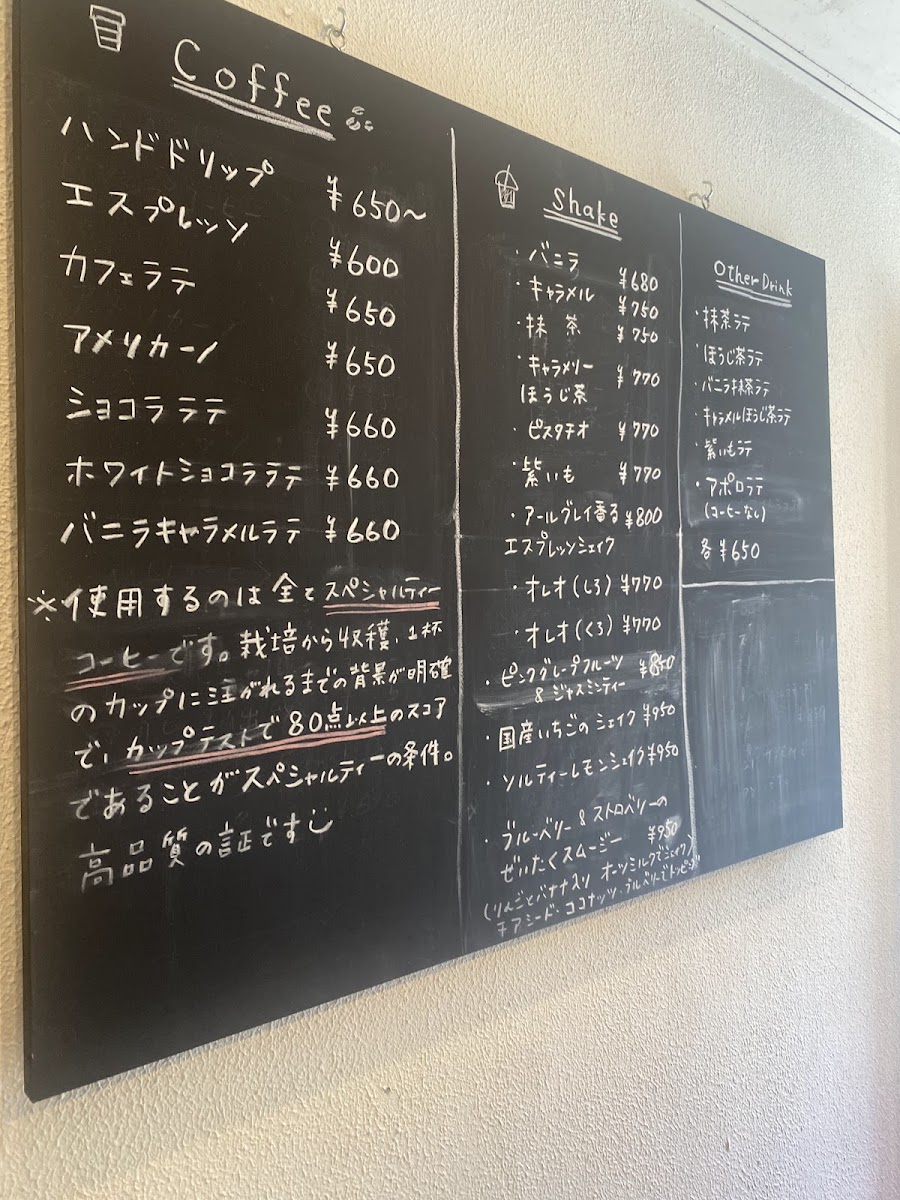 Coffee
ハンドドリップ ¥650〜
エスプレッソ ¥600
カフェラテ ¥650
アメリカーノ ¥650
ショコララテ ¥660
ホワイトショコララテ ¥660
バニラキャラメルラテ ¥660
※使用するのは全てスペシャルティー
コーヒーです。栽培から収穫、1杯
のカップに注がれるまでの背景が明確
で、カップテストで80点以上のスコア
であることがスペシャルティーの条件。
高品質の証です
Shake
・バニラ ¥680
・キャラメル ¥750
・抹茶 ¥750
・キャラメリー ¥770
ほうじ茶
・ピスタチオ ¥770
・紫いも ¥770
・アールグレイ香る ¥800
エスプレッソシェイク
・オレオ(しろ) ¥770
・オレオ(くろ) ¥770
・ピンクグレープフルーツ ¥850
& ジャスミンティー
・国産いちごのシェイク ¥950
・ソルティーレモンシェイク ¥950
・ブルーベリー & ストロベリーの
ぜいたくスムージー ¥950
(りんごとバナナ入り オーツミルクでシェイク)
チアシード・ココナッツ・ブルーベリーでトッピング
Other Drink
・抹茶ラテ
・ほうじ茶ラテ
・バニラ抹茶ラテ
・キャラメルほうじ茶ラテ
・紫いもラテ
・アポロラテ
(コーヒーなし)
各¥650